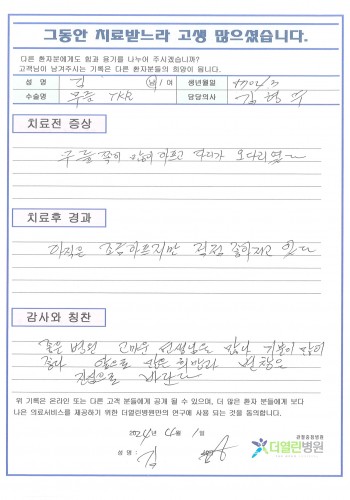 그동안 치료받느라 고생 많으셨습니다.
다른 환자분에게도 힘과 용기를 나누어 주시겠습니까?
고객님이 남겨주시는 기록은 다른 환자분들의 희망이 됩니다.
성 명 김 남 / 여 생년월일
수술명 무릎 TKR 담당의사 김형
치료전 증상
많이 아프고 다리가 오다리였
치료후 경과
아직은 조금아프지만 점점 좋아지고 있다
감사와 칭찬
좋은 병원 고마운 선생님을 기분이 많이
좋다 앞으로 많은 번창을
진심으로 바란다
위 기록은 온라인 또는 다른 고객 분들에게 공개 될 수 있으며, 더 많은 환자 분들에게 보다
나은 의료서비스를 제공하기 위한 더열린병원만의 연구에 사용 되는 것을 동의합니다.
2024년 4월 1일
성명 : 김
관절중점병원
더열린병원